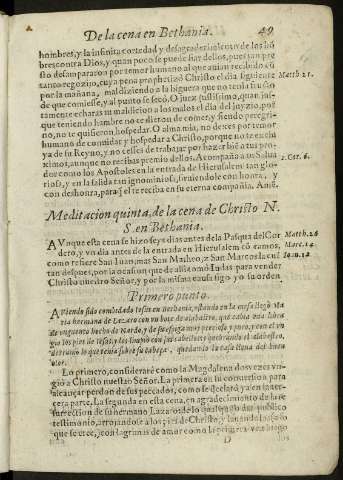 De la cena en Bethania. 49
hombres, y la infinita cortedad y desagradecimiento de los hó
bres contra Dios, y quan poco se puede fiar dellos, pues tan pre
sto desampararon por temor humano al que auian recebido có
tanto regozijo, cuya pena prophetizó Christo el dia siguiente Matth. 21.
por la mañana, maldiziendo a la higuera que no tenia fruto
de que comiesse, y al punto se secó. O juez justissimo, quan jus-
tamente echaras tu maldicion a los malos el dia del juyzio, por
que teniendo hambre no te dieron de comer, y siendo peregri-
no, no te quisieron hospedar. O alma mia, no dexes por temor
humano de combidar y hospedar a Christo, porque no te exclu
ya de su Reyno, y no cesses de trabajar por hazer bié a tus pro-
ximos, aunque no recibas premio dellos. Acompaña a tu Salua
dor como los Apostoles en la entrada de Hierusalem tan glo- 2. Cor. 6.
riosa, y en la salida tan ignominiosa, siruiendole con honra, y
con deshonra, para q̃ el te reciba en su eterna compañia. Amé.
Meditacion quinta, de la cena de Christo N.
S. en Bethania.
AVnque esta cena se hizo seys dias antes de la Pasqua del Cor Matth. 26
dero, y vn dia antes de la entrada en Hierusalem có ramos, Marc. 14
como refiere San Iuan, mas San Matheo, y San Marcos la cué Ioan. 12
tan despues, por la ocasion que de alli tomó Iudas para vender
Christo nuestro Señor, y por la misma causa sigo yo su orden
Primero punto.
Auiendo sido combidado Iesus en Bethania, estando en la mesa llegó Ma
ria hermana de Lazaro con vn bote de alabastro, que cabia vna libra
de vnguento hecho de Nardo, y de su espiga muy precioso y puro, y con el vn
gio los pies de Iesus, y los limpió con sus cabellos; y quebrando el alabastro,
derramó lo que tenia sobre su cabeça, quedando la casa llena del buen
olor.
Lo primero, consideraré como la Magdalena dos vezes vn-
gió a Christo nuestro Señor. La primera en su conuersion para
alcançar perdon de sus peccados, como se declaró ya en la
cera parte. La segunda en esta cena, en agradecimiento de la re
surreccion de su hermano Lazaro: de lo qual quiso dar publico
testimonio, arrojandose a los pies de Christo, y llorando sobre
que se cree, con lagrimas de amor como la primera vez
D